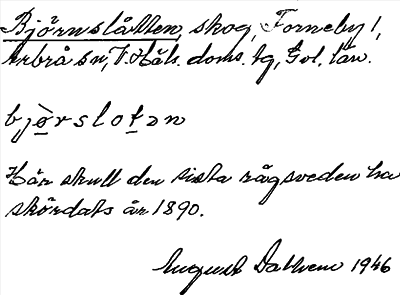 Björnslåtten, skog, Forneby 1,
Arbrå sn, V. Häls. doms. tg, Gvl. län.
bjørslotən
Här skull den sista rågsveden ha
skördats år 1890.
August Dahlven 1946